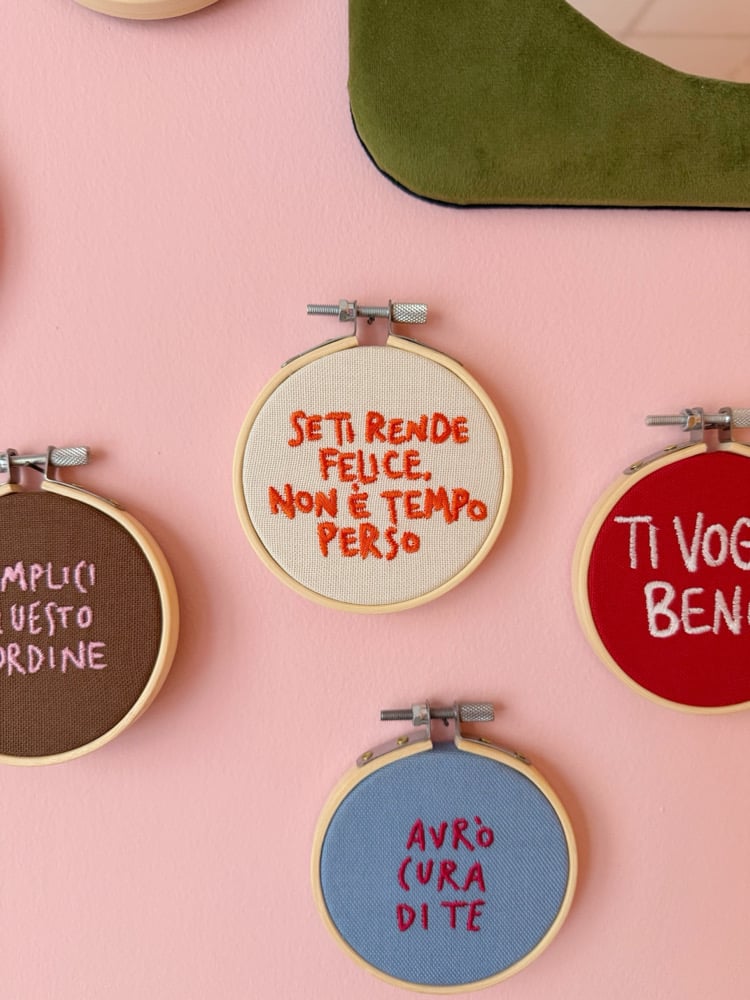 SE TI RENDE
FELICE,
NON È TEMPO
PERSO
MPLICI
UESTO
ORDINE
TI VOG
BEN
AVRÒ
CURA
DI TE